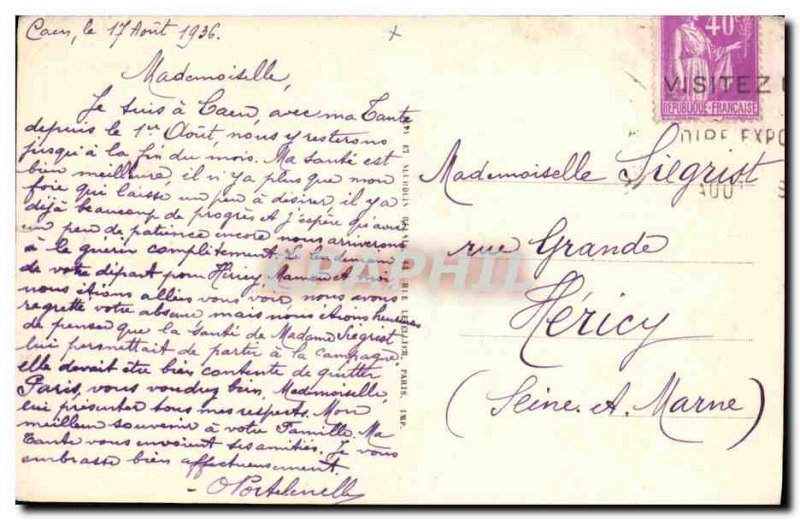 Caen, le 17 Août 1936.
Mademoiselle,
Je suis à Caen, avec ma Tante
depuis le 1er Août, nous y resterons
jusqu'à la fin du mois. Ma santé est
bien meilleure, il n'y a plus que mon
foie qui laisse un peu à désirer, il y a
déjà beaucoup de progrès et j'espère qu'avec
un peu de patience encore nous arriverons
à le guérir complètement. Le lendemain
de votre départ pour Héricy, Maman et moi
nous étions allées vous voir, nous avons
regretté votre absence mais nous étions heureuses
de penser que la santé de Madame Siégrist
lui permettait de partir à la campagne
elle devait être bien contente de quitter
Paris, vous voudrez bien, Mademoiselle,
lui présenter tous mes respects. Mon
meilleur souvenir à votre Famille. Ma
Tante vous envoient ses amitiés. Je vous
embrasse bien affectueusement.
40
VISITEZ
REPUBLIQUE-FRANÇAISE
OIRE EXPO
AOU
Mademoiselle Siégrist
rue Grande
Héricy
(Seine et Marne)
PARIS, IMP.
CPAPHIL